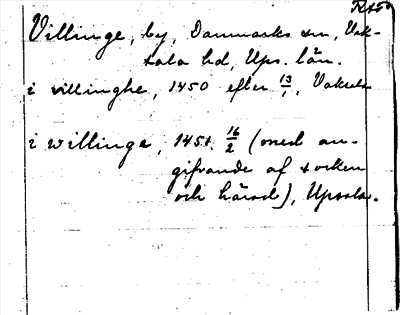 RA 50
Villinge, by, Danmarks sn, Vak-
sala hd, Ups. län.
i villinghe, 1450 efter 13/1, Vaksala
i willinge, 1451 16/2 (med an-
gifvande af socken
och härad), Upsala.